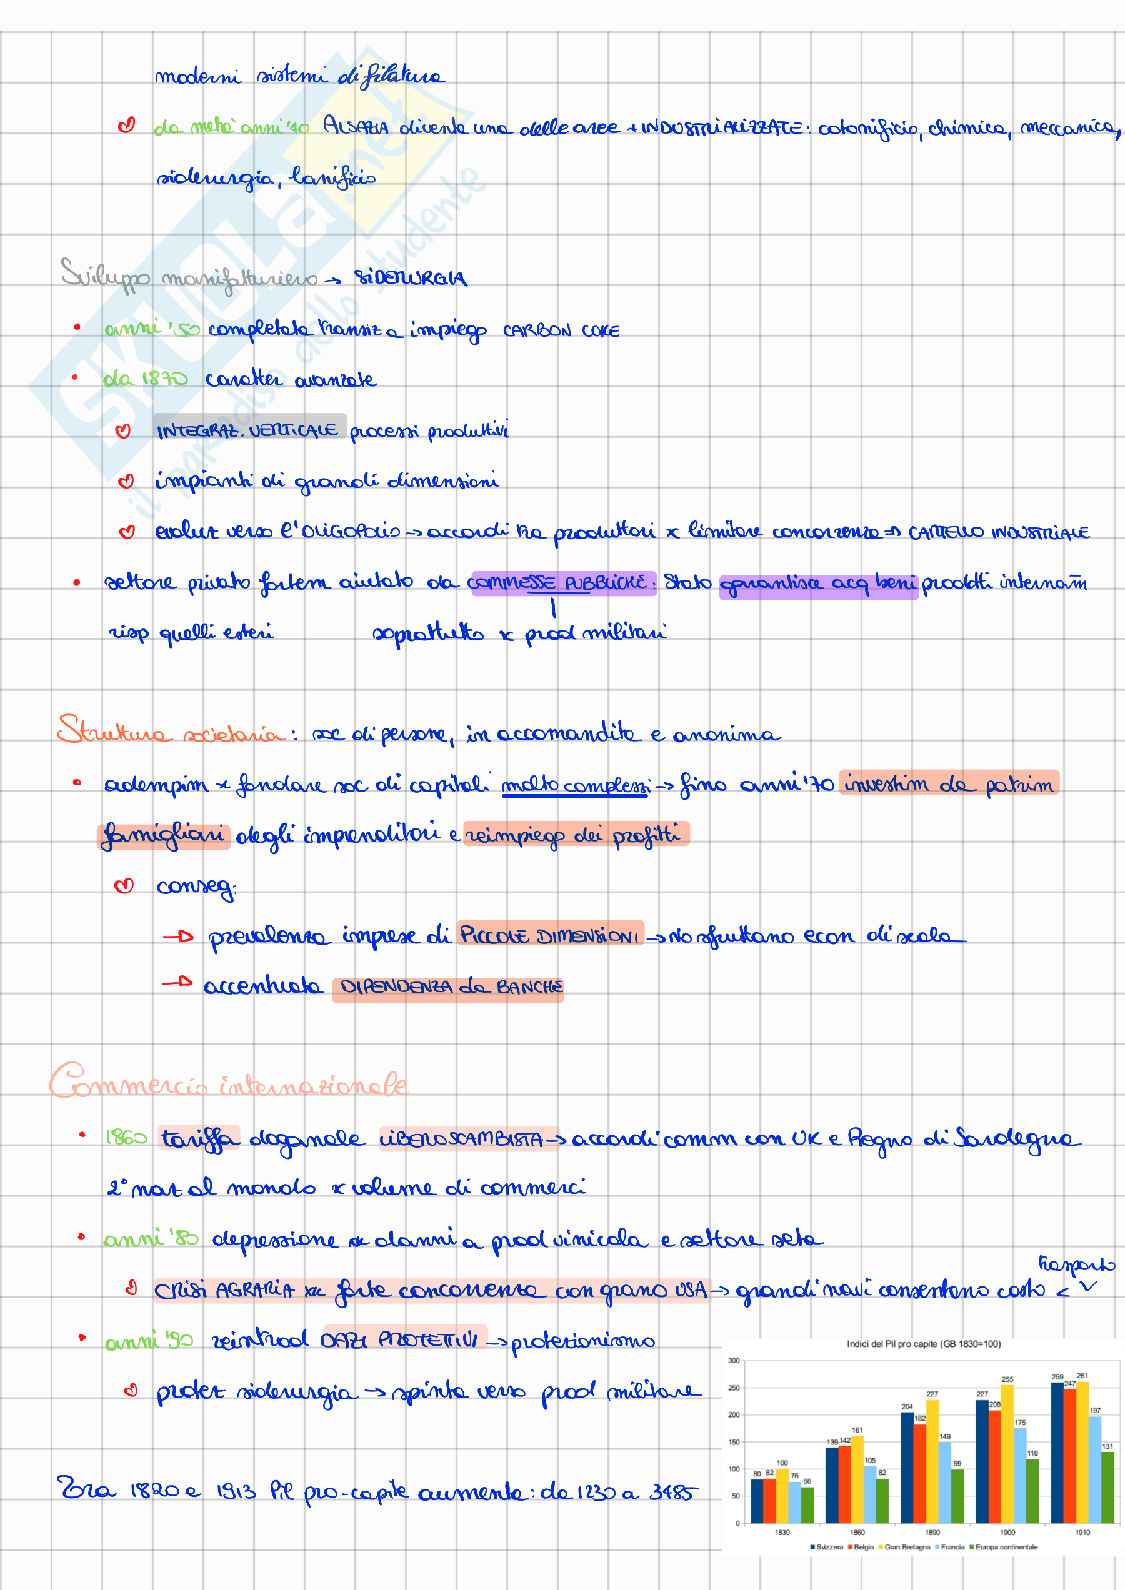 moderni sistemi di filatura
da metà anni '40 ALSAZIA diventa una delle aree + INDUSTRIALIZZATE: cotonificio, chimica, meccanica,
siderurgia, lanificio
Sviluppo manifatturiero → SIDERURGIA
• anni '50 completata transiz a impiego CARBON COKE
• da 1870 caratter avanzate
INTEGRAZ. VERTICALE processi produttivi
impianti di grandi dimensioni
evoluz verso l'OLIGOPOLIO → accordi tra produttori x limitare concorrenza ⇒ CARTELLO INDUSTRIALE
• settore privato fortem aiutato da COMMESSE PUBBLICHE: Stato garantisce acq beni prodotti internam
risp quelli esteri soprattutto x prod militari
Struttura societaria: soc di persone, in accomandita e anonima
• adempim x fondare soc di capitali molto complessi → fino anni '70 investim da patrim
famigliari degli imprenditori e reimpiego dei profitti
conseg:
→ prevalenza imprese di PICCOLE DIMENSIONI → No sfruttano econ di scala
→ accentuata DIPENDENZA da BANCHE
Commercio internazionale
• 1860 tariffa doganale LIBEROSCAMBISTA → accordi comm con UK e Regno di Sardegna
2° naz al mondo x volume di commerci
• anni '80 depressione x danni a prod vinicola e settore seta
trasporto
CRISI AGRARIA xk forte concorrenza con grano USA → grandi navi consentono costo <
• anni '90 reintrod DAZI PROTETTIVI → protezionismo
protez siderurgia → spinta verso prod militare
Tra 1820 e 1913 Pil pro-capite aumenta: da 1230 a 3485
Indici del Pil pro capite (GB 1830=100)
300
250
200
150
100
50
0
80 82 100 76 66
139 142 161 105 82
204 182 227 149 99
227 208 255 175 118
259 247 261 197 131
1830 1860 1890 1900 1910
Svizzera Belgio Gran Bretagna Francia Europa continentale
SKUOLA.net
il paradiso dello studente